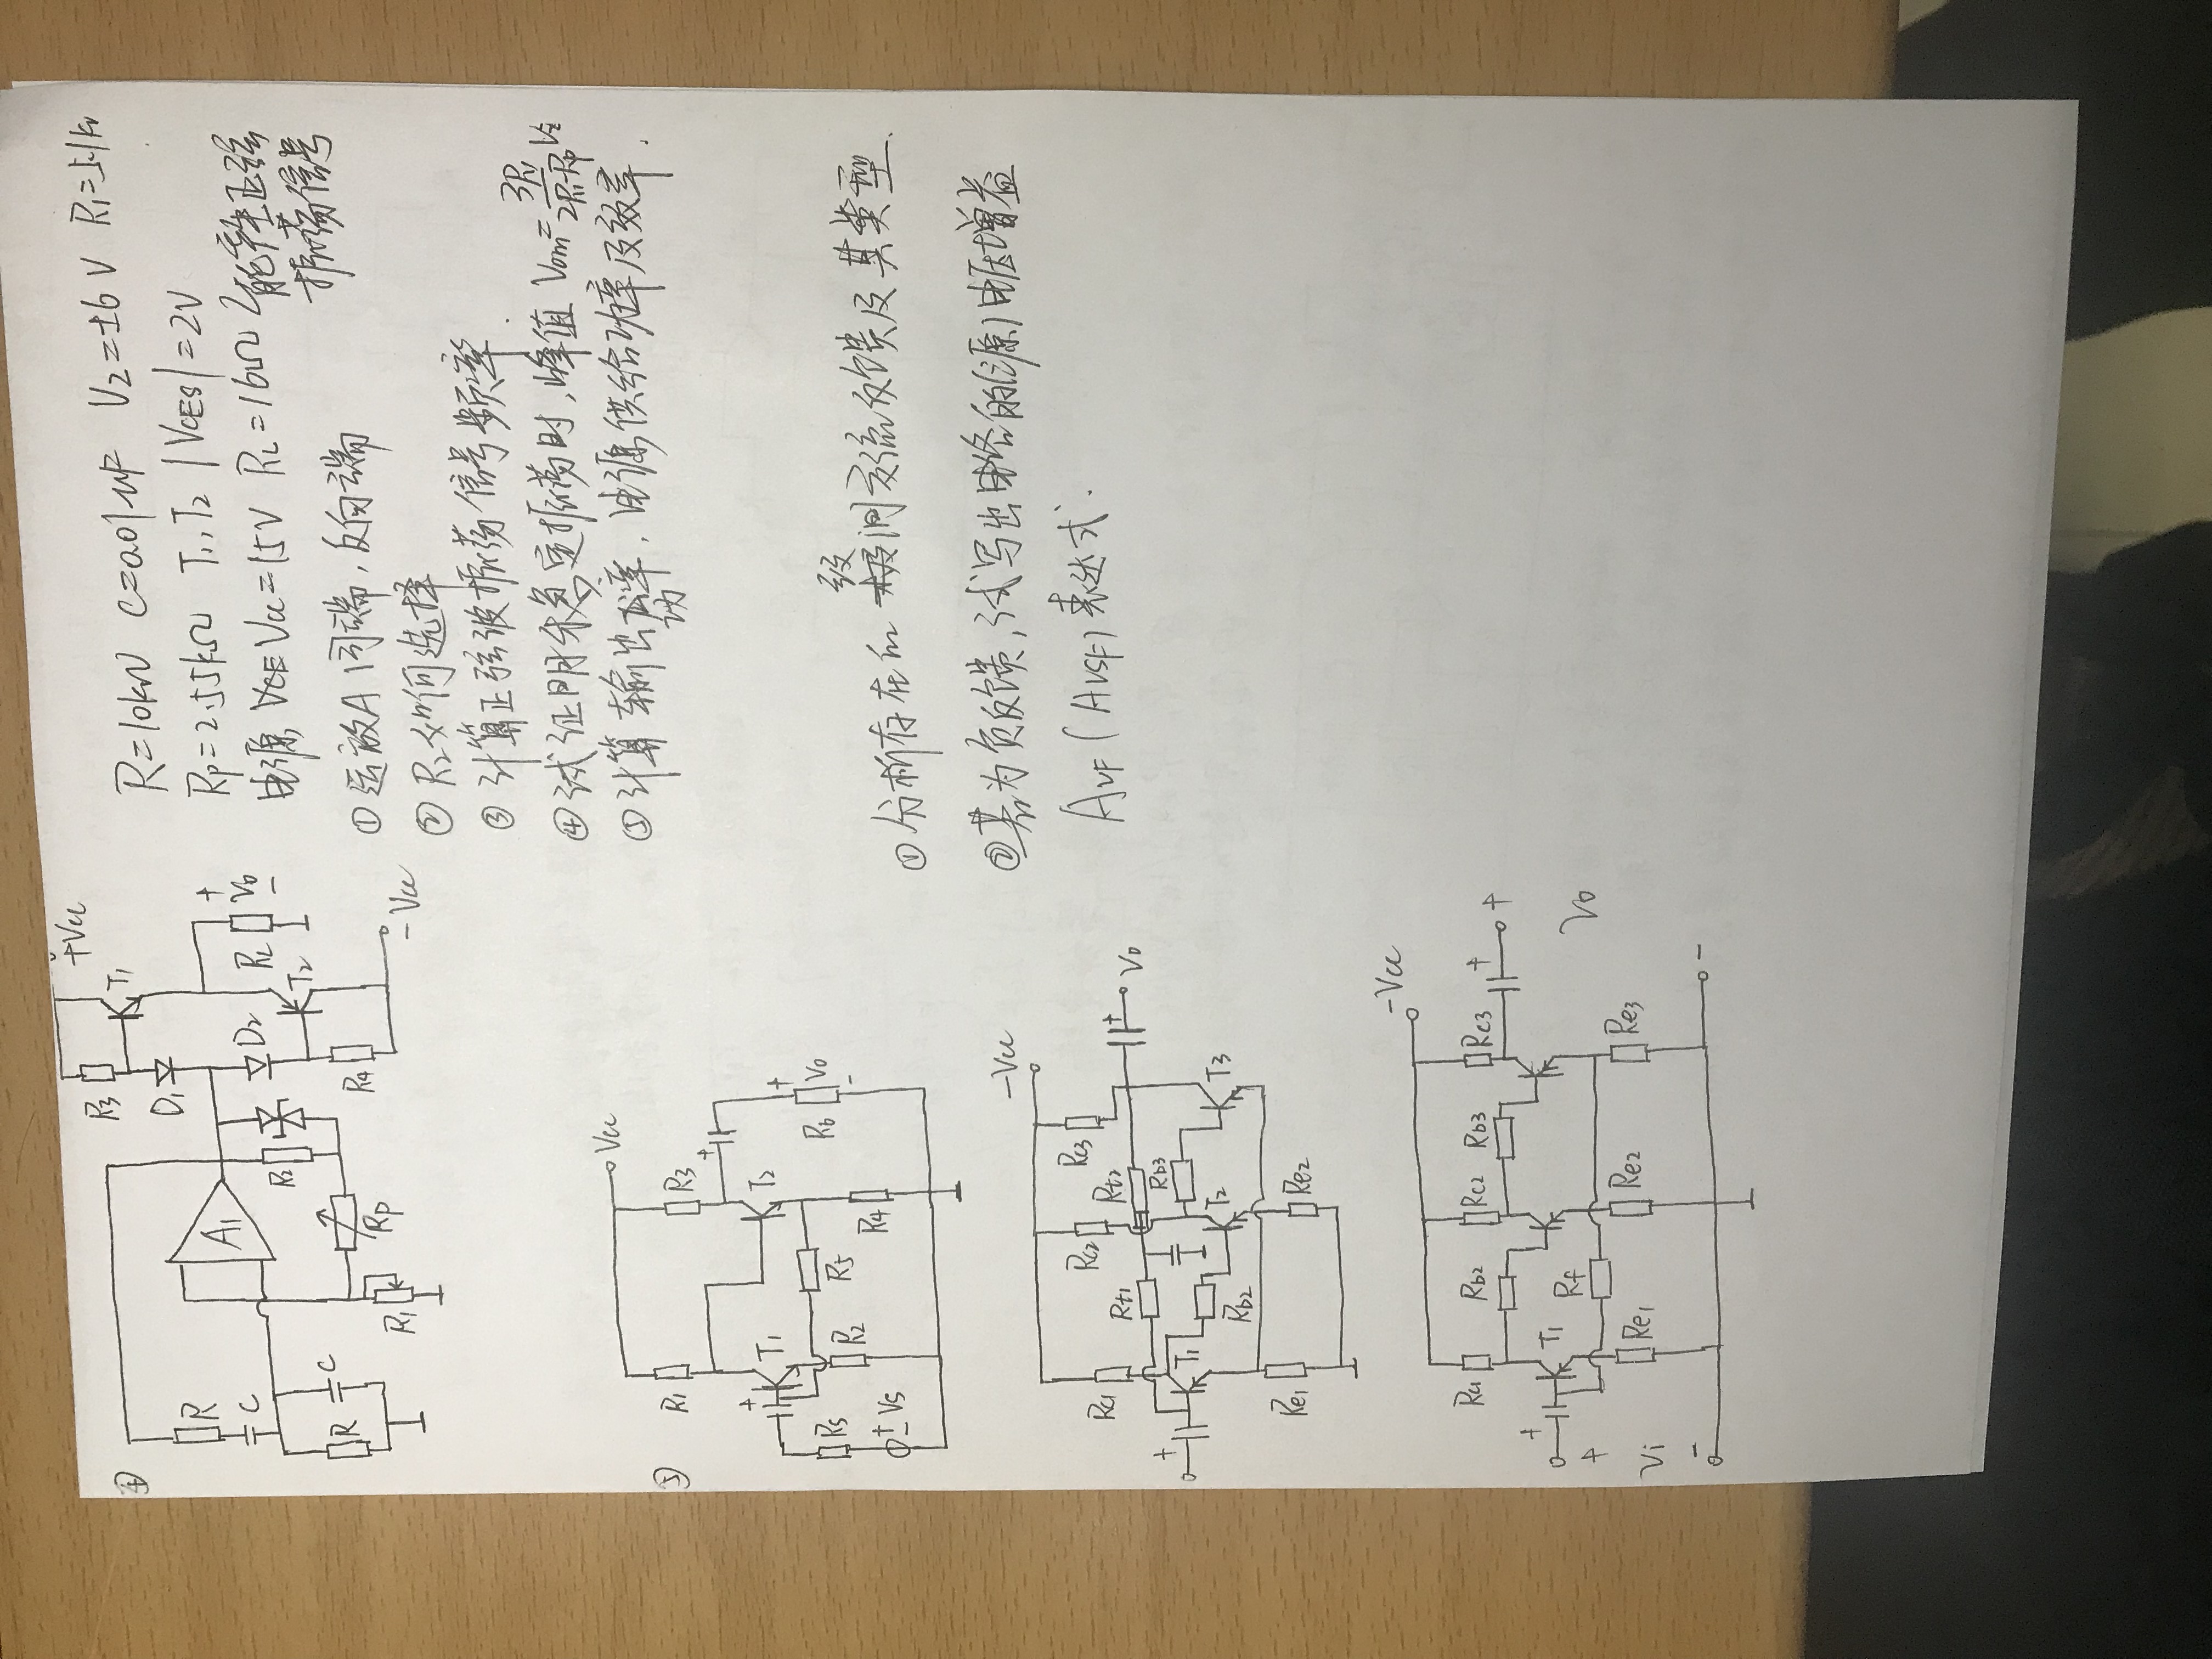 ④
+Vcc
R3
T1
D1
R
C
A1
D2
R2
RL
+
V0
-
T2
R
C
R4
R1
Rp
-Vcc
R=10kΩ C=0.01μF VZ=±6V R1=5.1kΩ
Rp=2.55kΩ T1,T2 |VCES|=2V
电源 Vcc=15V RL=16Ω 能产生正弦
振荡信号
① 运放A 同端,反向端
② R2如何选择
③ 计算正弦波振荡信号频率.
④ 试证明稳定振荡时,峰值 Vom=3R1/(2R1-Rp) Vz
⑤ 计算输出功率,电源供给功率及效率.
⑤
Vcc
R1
R3
+
+
T1
T2
+
R5
R2
R5
R6
V0
-
R4
+
-
VS
① 分析存在的级间交流反馈及其类型.
② 若为负反馈,试写出电路的(源)电压增益
AVF(AVSF)表达式.
-Vcc
Rc1
Rc2
Rc3
Rf1
Rf2
+
V0
+
T1
Rb3
Rb2
T2
T3
Re1
Re2
-Vcc
Rc1
Rb2
Rc2
Rb3
Rc3
+
+
+
T1
Rf
V0
+
Re1
Re2
Re3
Vi
-
-